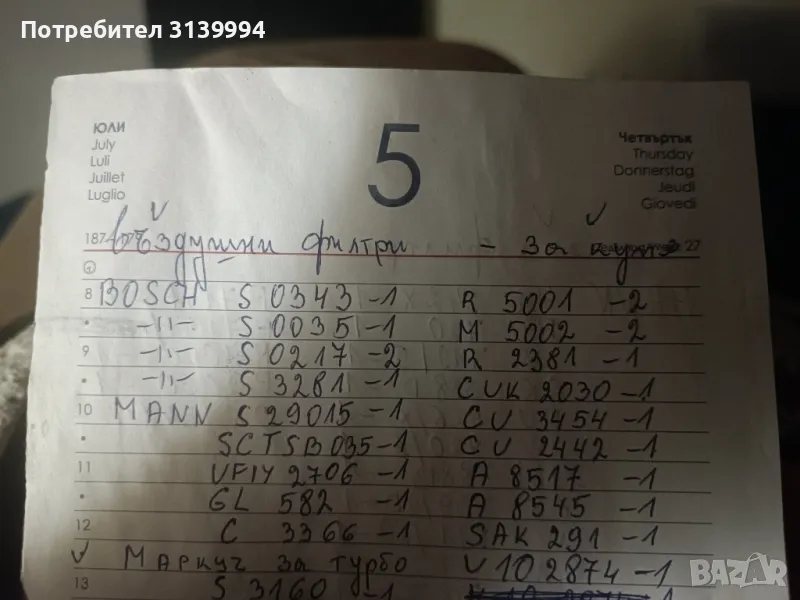 Потребител 3139994
ЮЛИ
July
Luli
Juillet
Luglio
5
Четвъртък
Thursday
Donnerstag
Jeudi
Giovedi
187 Въздушни филтри - за 27
8 BOSCH S 0343 -1 R 5001 -2
-11- S 0035 -1 M 5002 -2
9 -11- S 0217 -2 R 2381 -1
-11- S 3281 -1 CUK 2030 -1
10 MANN S 29015 -1 CU 3454 -1
SCTSB035 -1 CU 2442 -1
11 UFIY 2706 -1 A 8517 -1
GL 582 -1 A 8545 -1
12 C 3366 -1 SAK 291 -1
Маркуч за турбо V 10 2874 -1
13 S 3160 -1
BAZAR